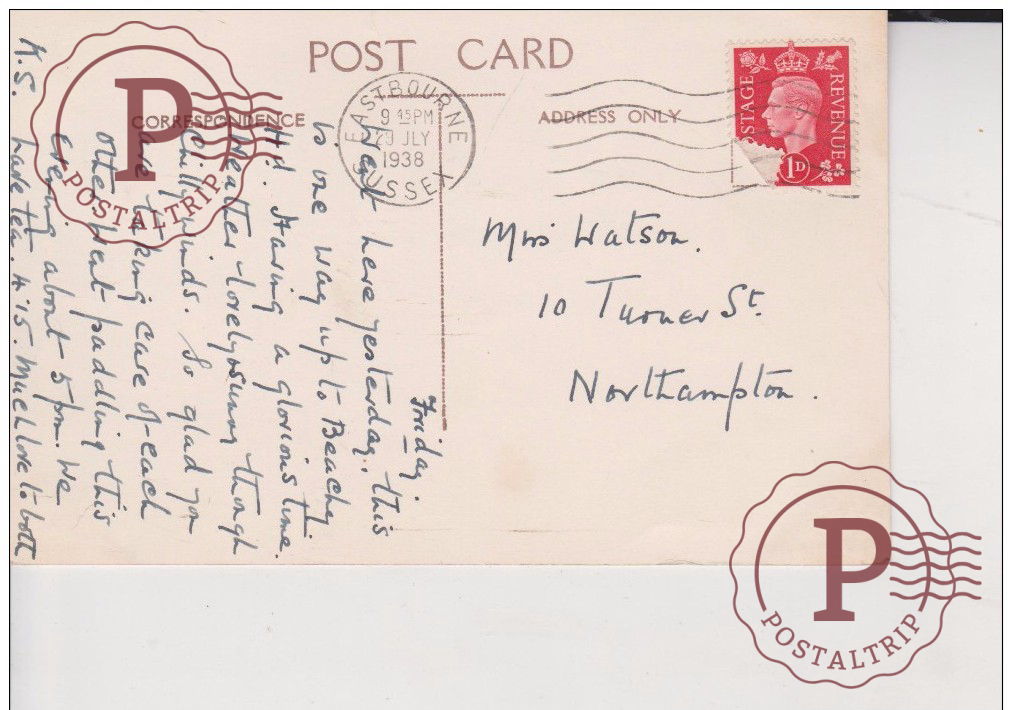 POST CARD
CORRESPONDENCE
ADDRESS ONLY
EASTBOURNE
9 15 PM
29 JLY
1938
SUSSEX
POSTAGE
REVENUE
1D
Friday.
Went here yesterday, this
is one way up to Beachy
Hd. Having a glorious time.
Weather lovely & sunny though
chilly winds. So glad you
are taking care of each
other. Went paddling this
evening about 5pm. We
have tea 4.15. Much love to both
K.S.
Mrs Watson.
10 Turner St.
Northampton.
P
POSTALTRIP
P
POSTALTRIP